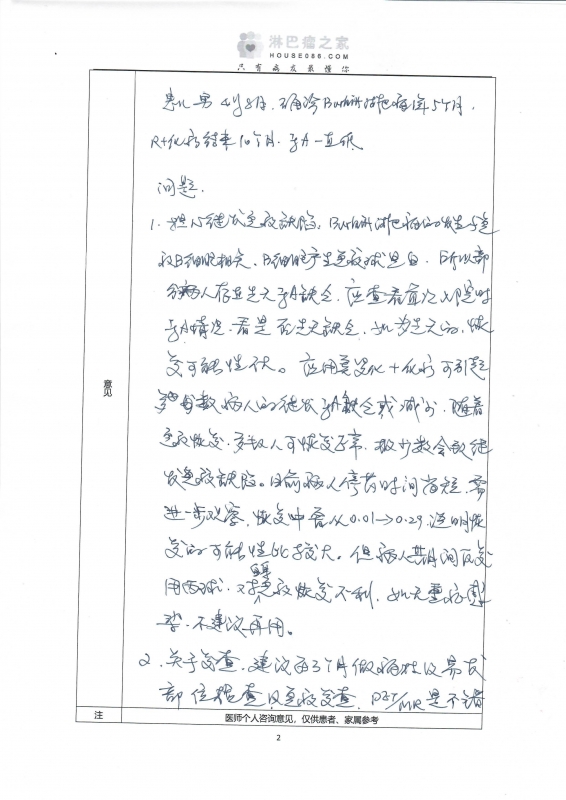 淋巴瘤之家
HOUSE086.COM
只有病友最懂你
患儿 男 4岁8月,确诊Burkitt淋巴瘤1年5个月,
R+化疗结束10个月,IgA一直低。
问题:
1. 担心继发免疫缺陷,Burkitt淋巴瘤的发生与免
疫B细胞相关,B细胞产生免疫球蛋白,所以部
分病人存在先天IgA缺乏,应查看首次入院时
IgA情况,看是否先天缺乏,如为先天的,恢
复可能性小。应用美罗华+化疗可引起
多数病人的继发IgA缺乏或减少,随着
免疫恢复,多数人可恢复正常,极少数会致继
发免疫缺陷。目前病人停药时间尚短,需
进一步观察,恢复中看从0.01→0.29,说明恢
复的可能性比较大。但病人期间反复
用丙球,对免疫恢复不利,如无重症感
染,不建议再用。
2. 关于复查,建议每3个月做病灶及易发
部位检查及免疫复查,PET/MR是不错
意见
注
医师个人咨询意见,仅供患者、家属参考
2